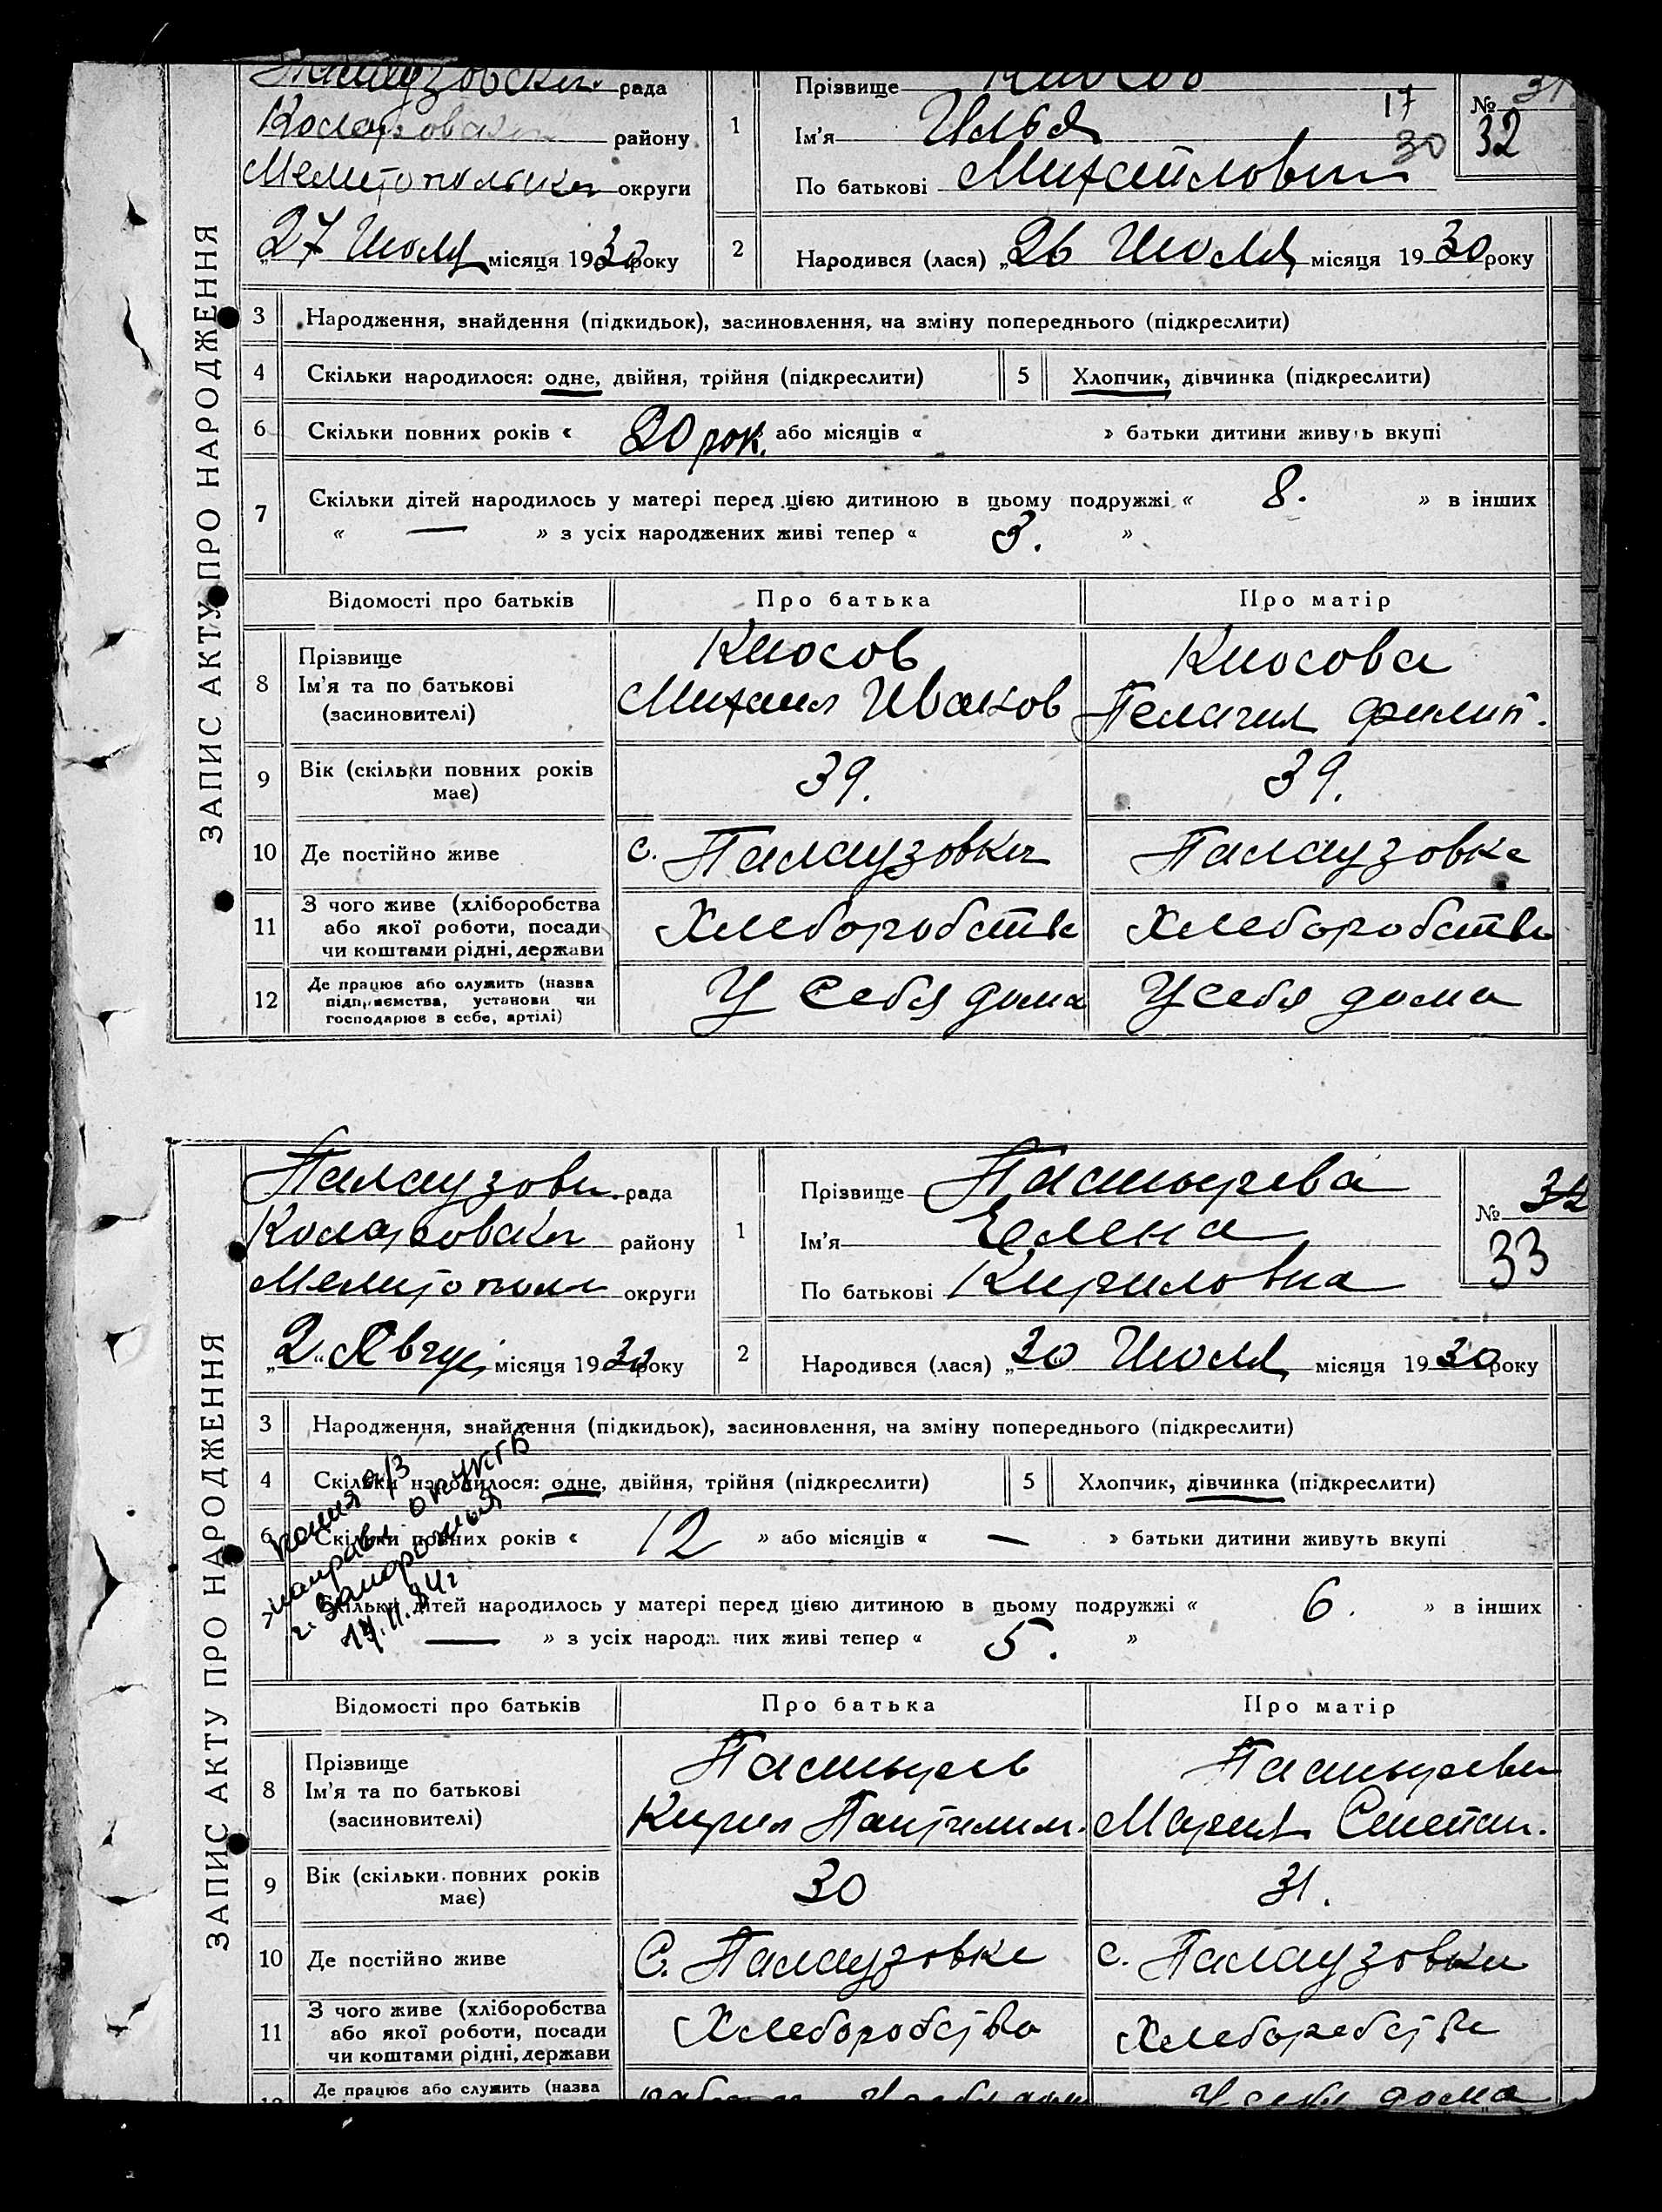 ЗАПИС АКТУ ПРО НАРОДЖЕННЯ
рада
района району
Мелитопольска округи
„27 Июля місяця 1930 року
1
Прізвище Киосов
Ім'я Илья
По батькові Михайлович
17
30
№ 31
32
2
Народився (лася) „26 Июля місяця 1930 року
3 Народження, знайдення (підкидьок), засиновлення, на зміну попереднього (підкреслити)
4 Скільки народилося: одне, двійня, трійня (підкреслити)
5 Хлопчик, дівчинка (підкреслити)
6 Скільки повних років « 20 рок. або місяців « » батьки дитини живуть вкупі
7 Скільки дітей народилось у матері перед цією дитиною в цьому подружжі « 8. » в інших
« — » з усіх народжених живі тепер « 3. »
Відомості про батьків Про батька Про матір
8 Прізвище Ім'я та по батькові (засиновителі)
Киосов Михаил Иванов
Киосова Пелагия Филип.
9 Вік (скільки повних років має) 39. 39.
10 Де постійно живе с. Палаузовка Палаузовка
11 З чого живе (хліборобства або якої роботи, посади чи коштами рідні, держави
Хлеборобства Хлеборобства
12 Де працює або служить (назва підприємства, установи чи господарює в себе, артілі)
У себя дома У себя дома
ЗАПИС АКТУ ПРО НАРОДЖЕННЯ
Палаузовк. рада
Коларовска району
округи
„2“ Август місяця 1930 року
1
Прізвище Пашырева
Ім'я Елена
По батькові Кириловна
№ 32
33
2
Народився (лася) „30 Июля місяця 1930 року
3 Народження, знайдення (підкидьок), засиновлення, на зміну попереднього (підкреслити)
4 Скільки народилося: одне, двійня, трійня (підкреслити)
5 Хлопчик, дівчинка (підкреслити)
6 Скільки повних років « 12 » або місяців « — » батьки дитини живуть вкупі
Скільки дітей народилось у матері перед цією дитиною в цьому подружжі « 6. » в інших
— » з усіх народжених живі тепер « 5. »
копия а/з
направл.
г. Запорожья
Відомості про батьків Про батька Про матір
8 Прізвище Ім'я та по батькові (засиновителі)
Пашырев Кирил
Пашырева Мария Степан.
9 Вік (скільки повних років має) 30 31.
10 Де постійно живе С. Палаузовка с. Палаузовка
11 З чого живе (хліборобства або якої роботи, посади чи коштами рідні, держави
Хлеборобства Хлеборобства
Де працює або служить (назва
У себя дома